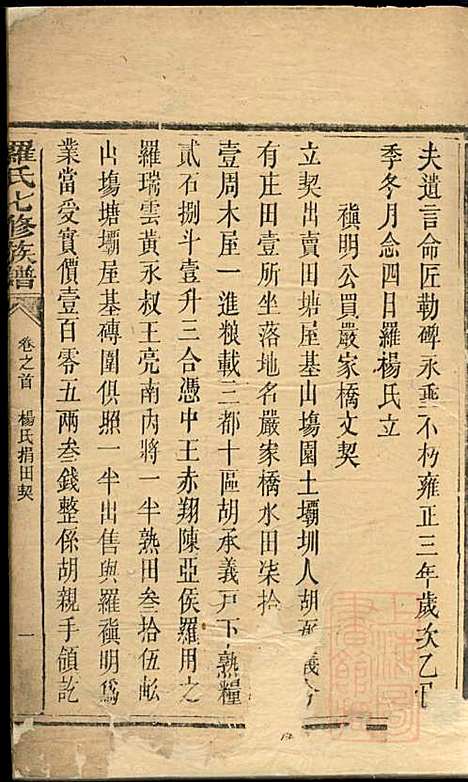 夫遺言命匠勒碑永垂不朽雍正三年歲次乙
季冬月念四日羅楊氏立
禛明公買嚴家橋文契
立契出賣田塘屋基山塲園土壩圳人胡承義今
有庄田壹所坐落地名嚴家橋水田柒拾
壹周木屋一進粮載三都十區胡承義戸下熟糧
貳石捌斗壹升三合憑中王赤翔陳亞侯羅用之
羅瑞雲黃永叔王亮南內將一半熟田叁拾伍畝
山塲塘壩屋基磚圍俱照一半出售與羅禛明爲
業當受實價壹百零五兩叁錢整係胡親手領訖
羅氏七修族譜
卷之首 楊氏捐田契 一